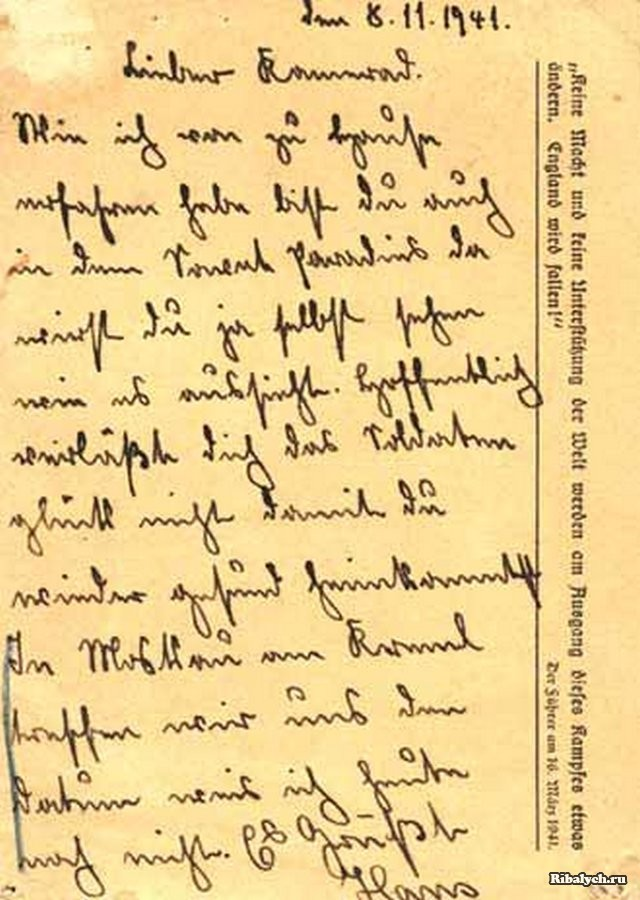 den 8.11.1941.
Lieber Kamerad.
Wie ich von zu Hause
erfahren habe bist du auch
in dem Soveet Paradies da
wirst du ja selbst sehen
wie es aussieht. Hoffentlich
verläßt dich das Soldaten
glück nicht damit du
wieder gesund heimkommst
In Moskau am Kreml
treffen wir uns den
Datum weis ich heute
noch nicht. Es Grüßt
Hans
„Keine Macht und keine Unterstützung der Welt werden am Ausgang dieses Kampfes etwas
ändern. England wird fallen!“
Der Führer am 16. März 1941.
Ribalych.ru